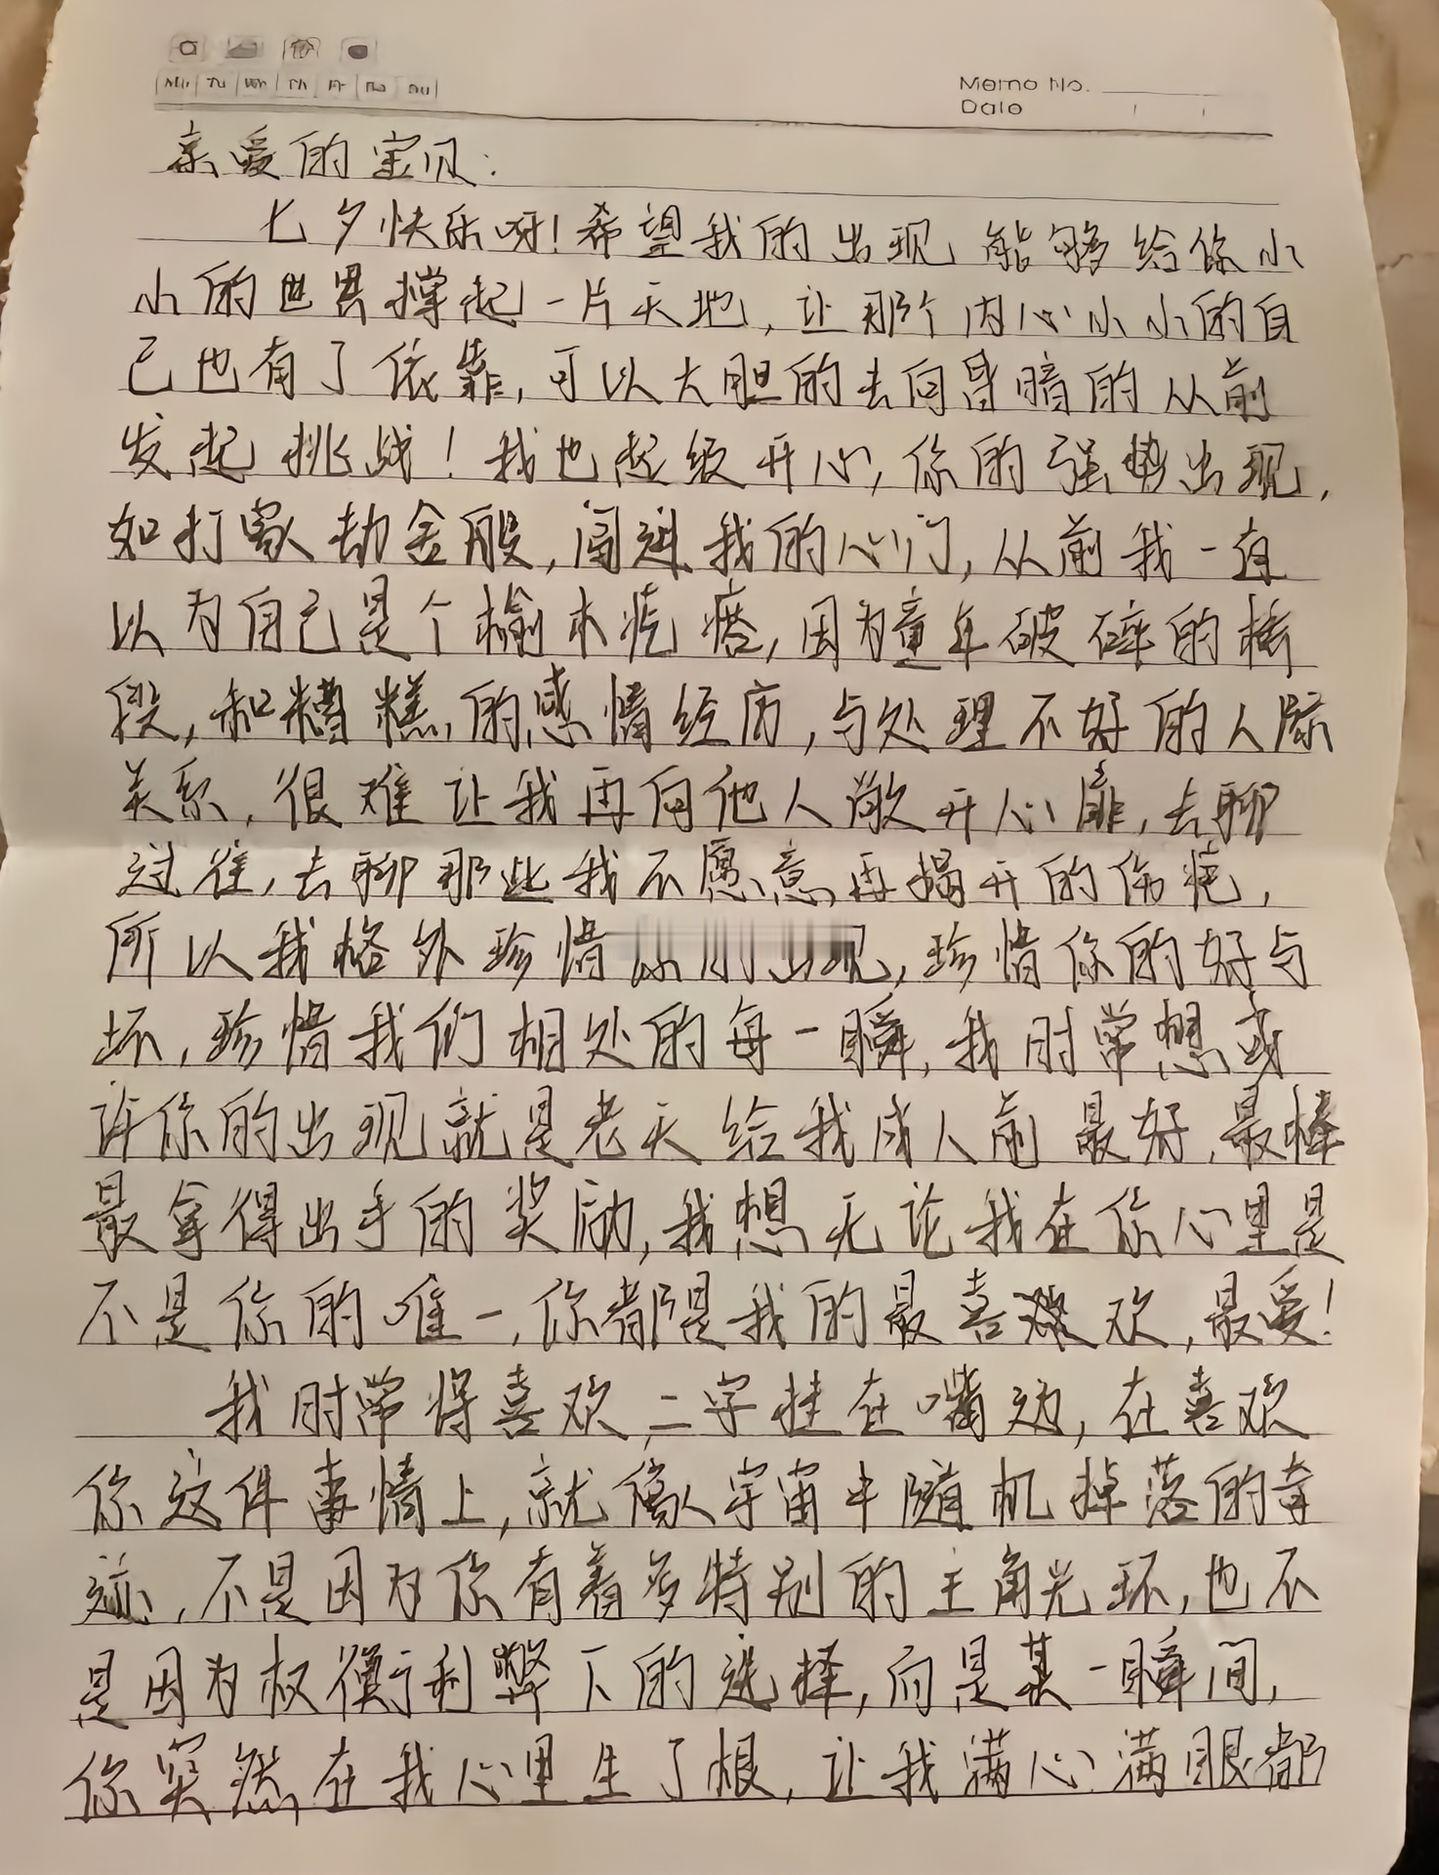 Mo Tu We Th Fr Sa Su
Memo No.
Date
亲爱的宝贝：
七夕快乐呀！希望我的出现能够给你小
小的世界撑起一片天地，让那个内心小小的自
己也有了依靠，可以大胆的去向昏暗的从前
发起挑战！我也超级开心，你的强势出现，
如打家劫舍般，闯进我的心门，从前我一直
以为自己是个榆木疙瘩，因为童年破碎的桥
段，和糟糕的感情经历，与处理不好的人际
关系，很难让我再向他人敞开心扉，去聊
过往，去聊那些我不愿意再揭开的伤疤，
所以我格外珍惜你的出现，珍惜你的好与
坏，珍惜我们相处的每一瞬，我时常想或
许你的出现就是老天给我成人前最好，最棒
最拿得出手的奖励，我想无论我在你心里是
不是你的唯一，你都是我的最喜欢，最爱！
我时常将喜欢二字挂在嘴边，在喜欢
你这件事情上，就像宇宙中随机掉落的奇
迹，不是因为你有着多特别的主角光环，也不
是因为权衡利弊下的选择，而是某一瞬间，
你突然在我心里生了根，让我满心满眼都